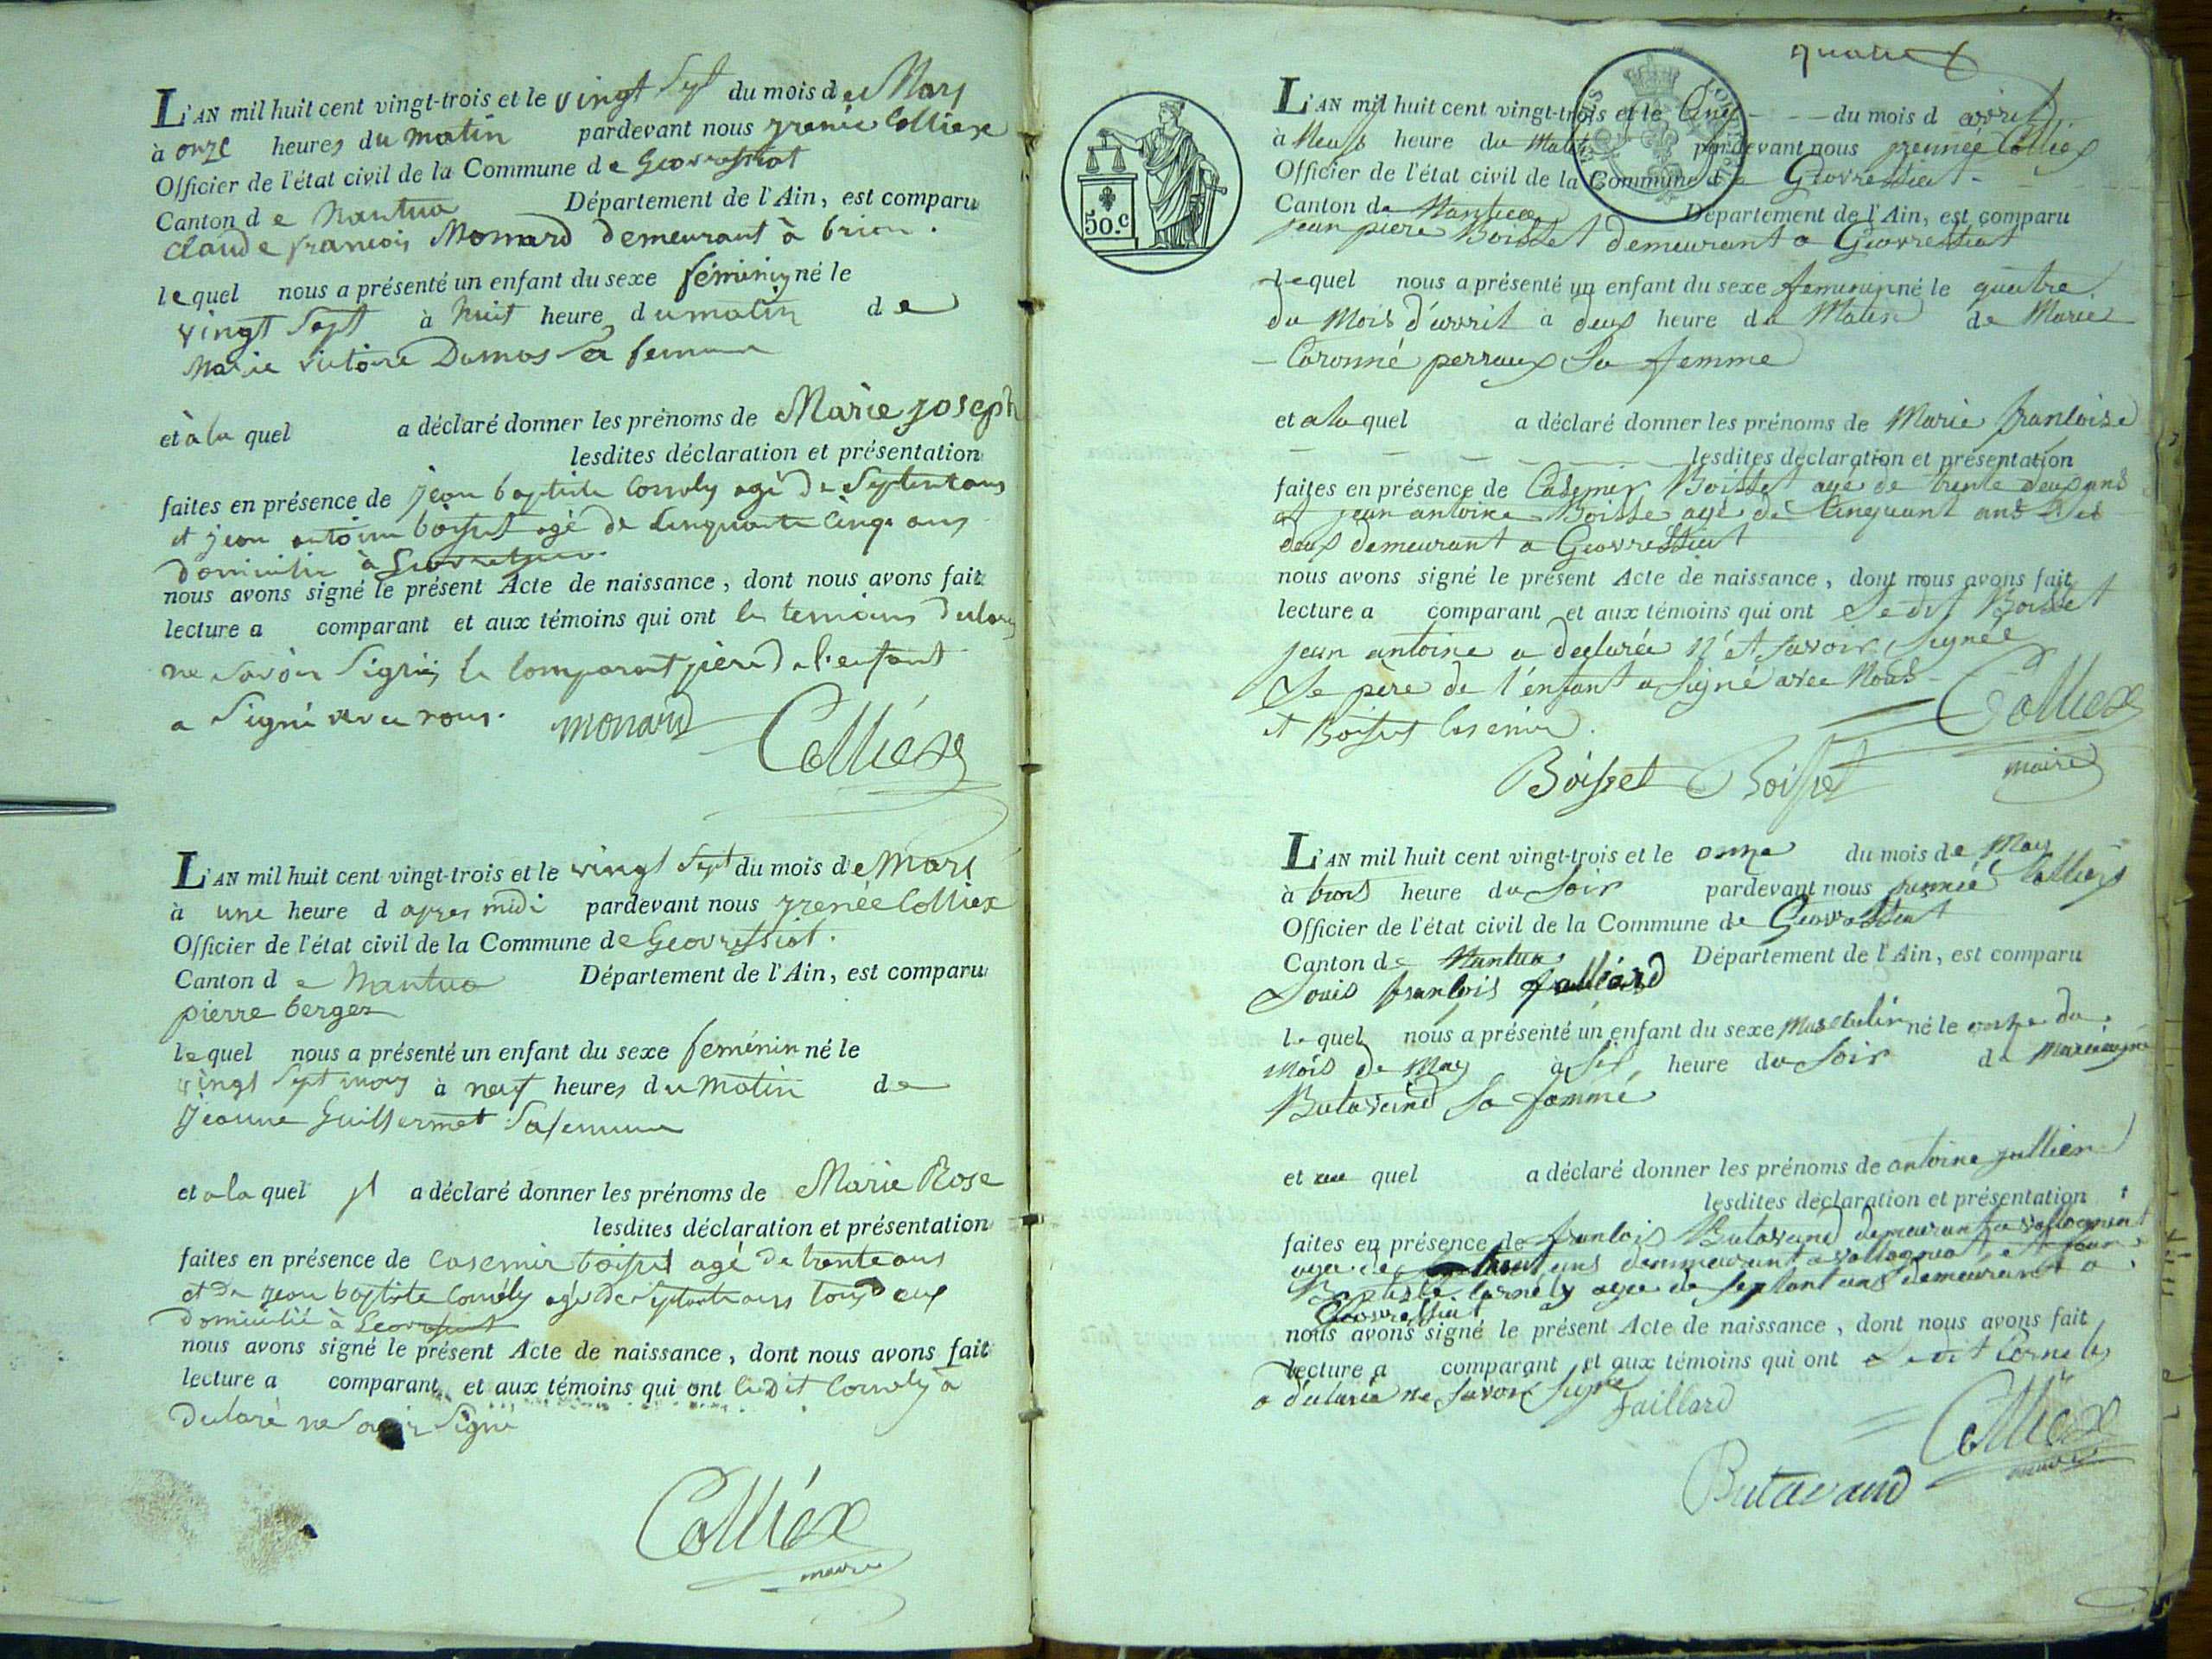 L'AN mil huit cent vingt-trois et le vingt Sept du mois de Mars
à onze heures du matin pardevant nous grenée Colliex
Officier de l'état civil de la Commune de Geovressiat
Canton de Nantua Département de l'Ain, est comparu
claude francois Monard demeurant à brion.
lequel nous a présenté un enfant du sexe féminin né le
vingt Sept à huit heure du matin de
Marie victoire Dumas Sa femme
et à la quel a déclaré donner les prénoms de Marie joseph
lesdites déclaration et présentation
faites en présence de jean baptiste Cornely agé de Septente ans
et jean antoine boisset agé de Cinquante Cinq ans
domicilié à
nous avons signé le présent Acte de naissance, dont nous avons fait
lecture a comparant et aux témoins qui ont les temoins
ne Savoir Signé le Comparant père de l'enfant
a Signé avec nous. monard Colliex
L'AN mil huit cent vingt-trois et le vingt Sept du mois de Mars
à une heure d apres midi pardevant nous grenée Colliex
Officier de l'état civil de la Commune de Geovressiat.
Canton de Nantua Département de l'Ain, est comparu
pierre berger
lequel nous a présenté un enfant du sexe feminin né le
vingt Sept à neuf heures du Matin de
Jeanne Guillermet Sa femme
et a la quel il a déclaré donner les prénoms de Marie Rose
lesdites déclaration et présentation
faites en présence de Casemir boisset agé de trente ans
et de jean baptiste Cornély agé de Septante ans tous deux
Domicilié à Geovressiat
nous avons signé le présent Acte de naissance, dont nous avons fait
lecture a comparant et aux témoins qui ont le Dit Cornely a
Declaré ne Savoir Signé
Colliex
maire
quatre
L'AN mil huit cent vingt-trois et le Cinq du mois d avril
à Neuf heure du Matin pardevant nous grennée Colliex
Officier de l'état civil de la Commune de Geovressiat
Canton de Nantua Département de l'Ain, est comparu
50.c
jean piere Boisset demeurant a Geovressiat
lequel nous a présenté un enfant du sexe femininné le quatre
du Mois d'avril à deux heure du Matin de Marie
Caronné perraux Sa femme
et a la quel a déclaré donner les prénoms de Marie francoise
lesdites déclaration et présentation
faites en présence de Casemir Boisset agé de trente deux ans
et jean antoine Boisse agé de Cinquant ans
deux demeurant a Geovressiat
nous avons signé le présent Acte de naissance, dont nous avons fait
lecture a comparant et aux témoins qui ont Le dit Boisset
jean antoine a declarée n'et Savoir Signée
Le père de l'enfant a Signé avec Nous
et Boisset Casemir. Colliex
Boisset Boisset maire
L'AN mil huit cent vingt-trois et le onze du mois de May
à trois heure du Soir pardevant nous grennée Colliex
Officier de l'état civil de la Commune de Geovressiat
Canton de Nantua Département de l'Ain, est comparu
Louis francois
lequel nous a présenté un enfant du sexe Masculin né le onze du
mois de May à heure du Soir de
Butavand Sa famme
et au quel a déclaré donner les prénoms de antoine jullien
lesdites déclaration et présentation
faites en présence de francois Butavand demeurant a vollognat
agé de ans demmeurant a vollognat et jean
Baptiste Cornely agée de Septant ans demeurant a
Geovressiat
nous avons signé le présent Acte de naissance, dont nous avons fait
lecture a comparant et aux témoins qui ont Le dit Cornely
a declaré ne Savoir Signe Jaillard
Colliex
maire
Butavand